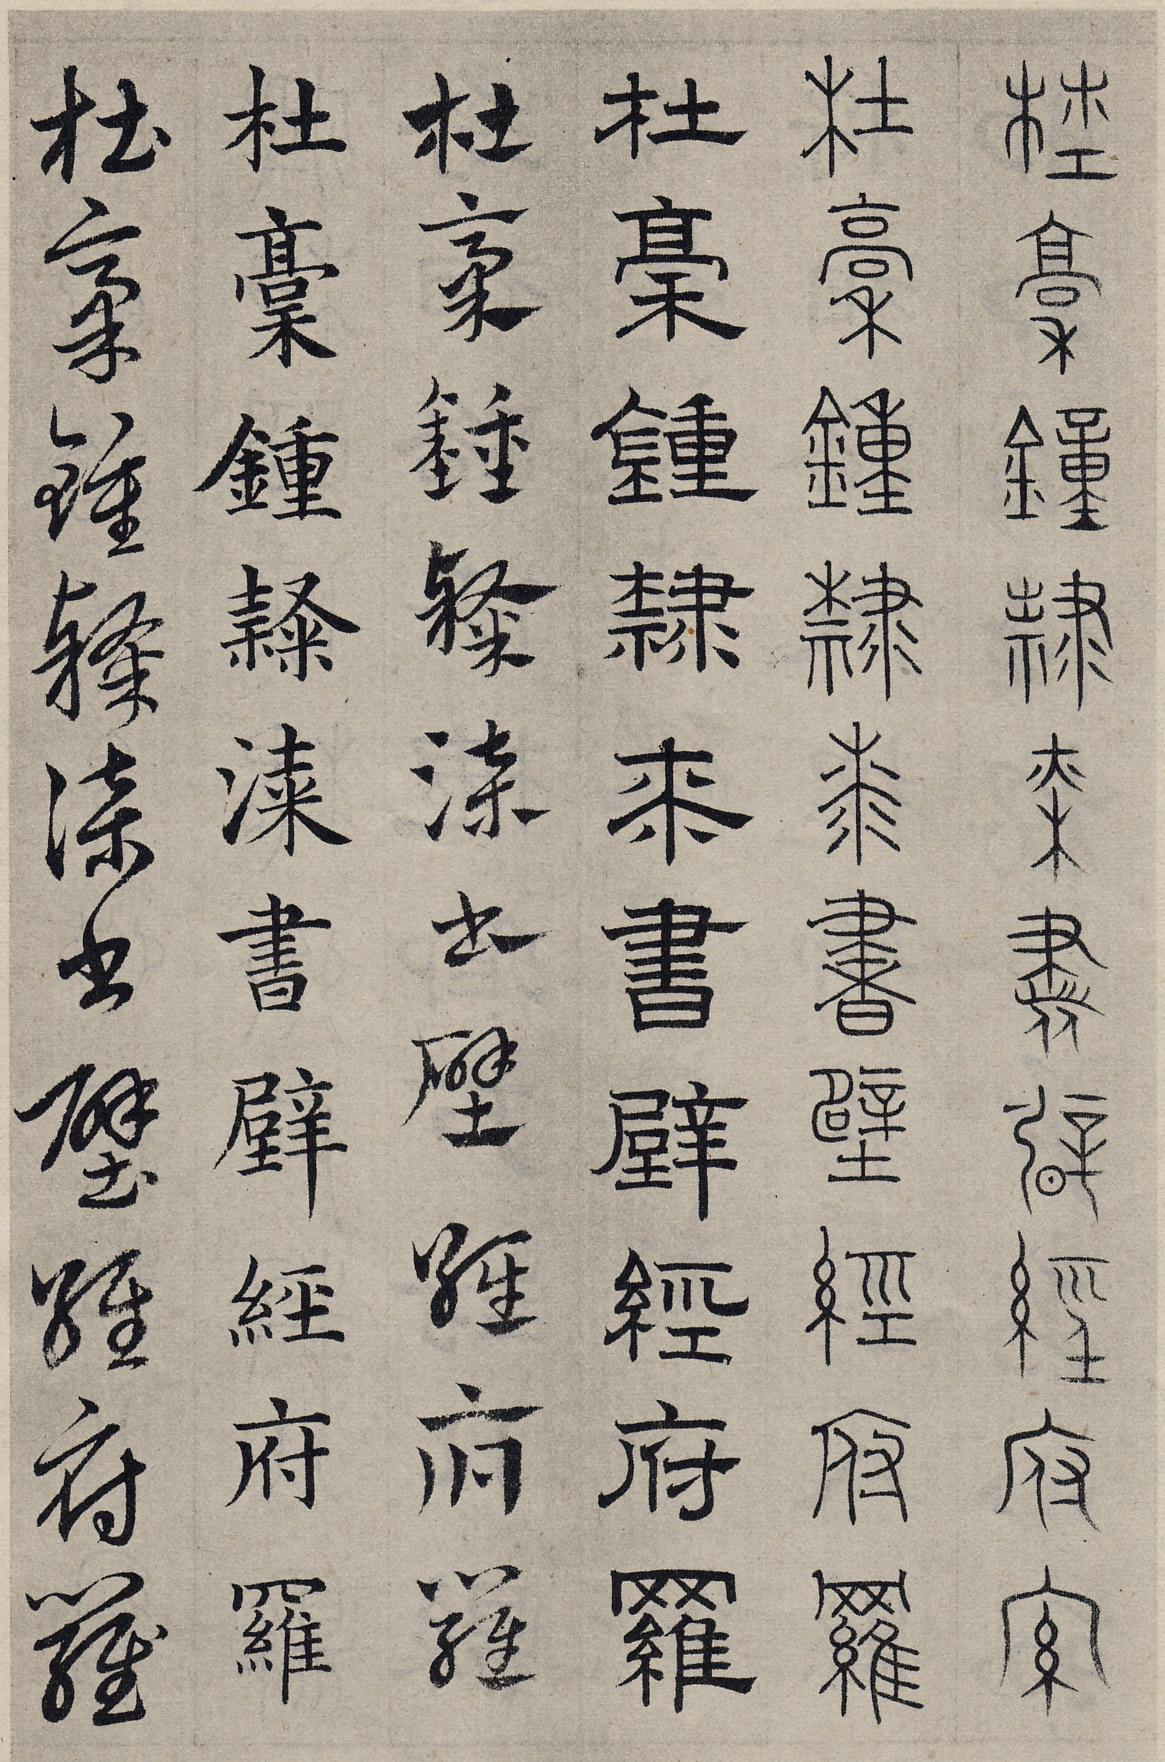 杜稾鍾隸漆書壁經府羅
杜稾鍾隸桼書壁經府羅
杜稾鍾隸桼書壁經府羅
杜稾鍾隸漆書壁經府羅
杜稾鍾隸漆書壁經府羅
杜稾鍾隸漆書壁經府羅